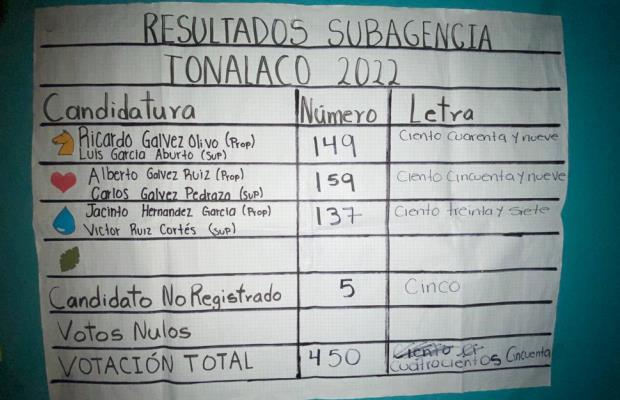 RESULTADOS SUBAGENCIA
TONALACO 2022
Candidatura Número Letra
Ricardo Galvez Olivo (Prop) 149 Ciento Cuarenta y nueve
Luis Garcia Aburto (Sup)
Alberto Galvez Ruiz (Prop) 159 Ciento Cincuenta y nueve
Carlos Galvez Pedraza (Sup)
Jacinto Hernandez Garcia (Prop) 137 Ciento treinta y siete
Victor Ruiz Cortés (Sup)
Candidato No Registrado 5 Cinco
Votos Nulos
VOTACIÓN TOTAL 450 Ciento
Cuatrocientos Cincuenta